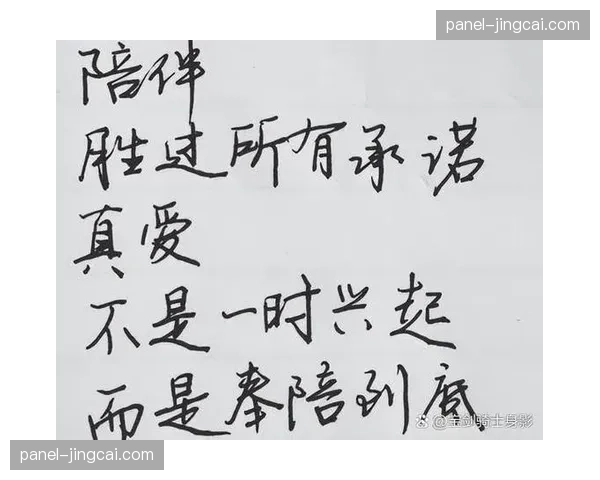 panel-jingcai.com
陪伴
胜过所有承诺
真爱
不是一时兴起
而是奉陪到底
@宝剑骑士身影
panel-jingcai.com